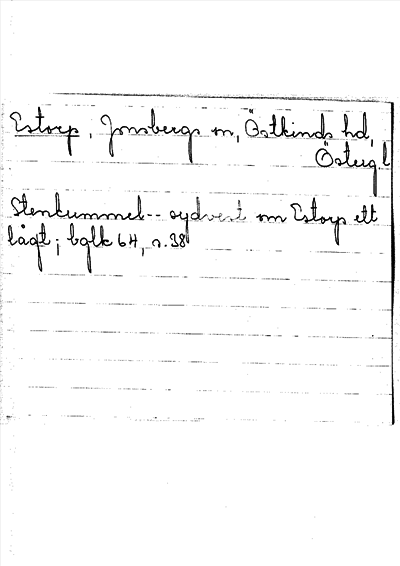 Estorp, Jonsbergs sn, Östkinds hd,
Östergl
Stenkummel -- sydvest om Estorp ett
lågt; bglk 64, s. 38